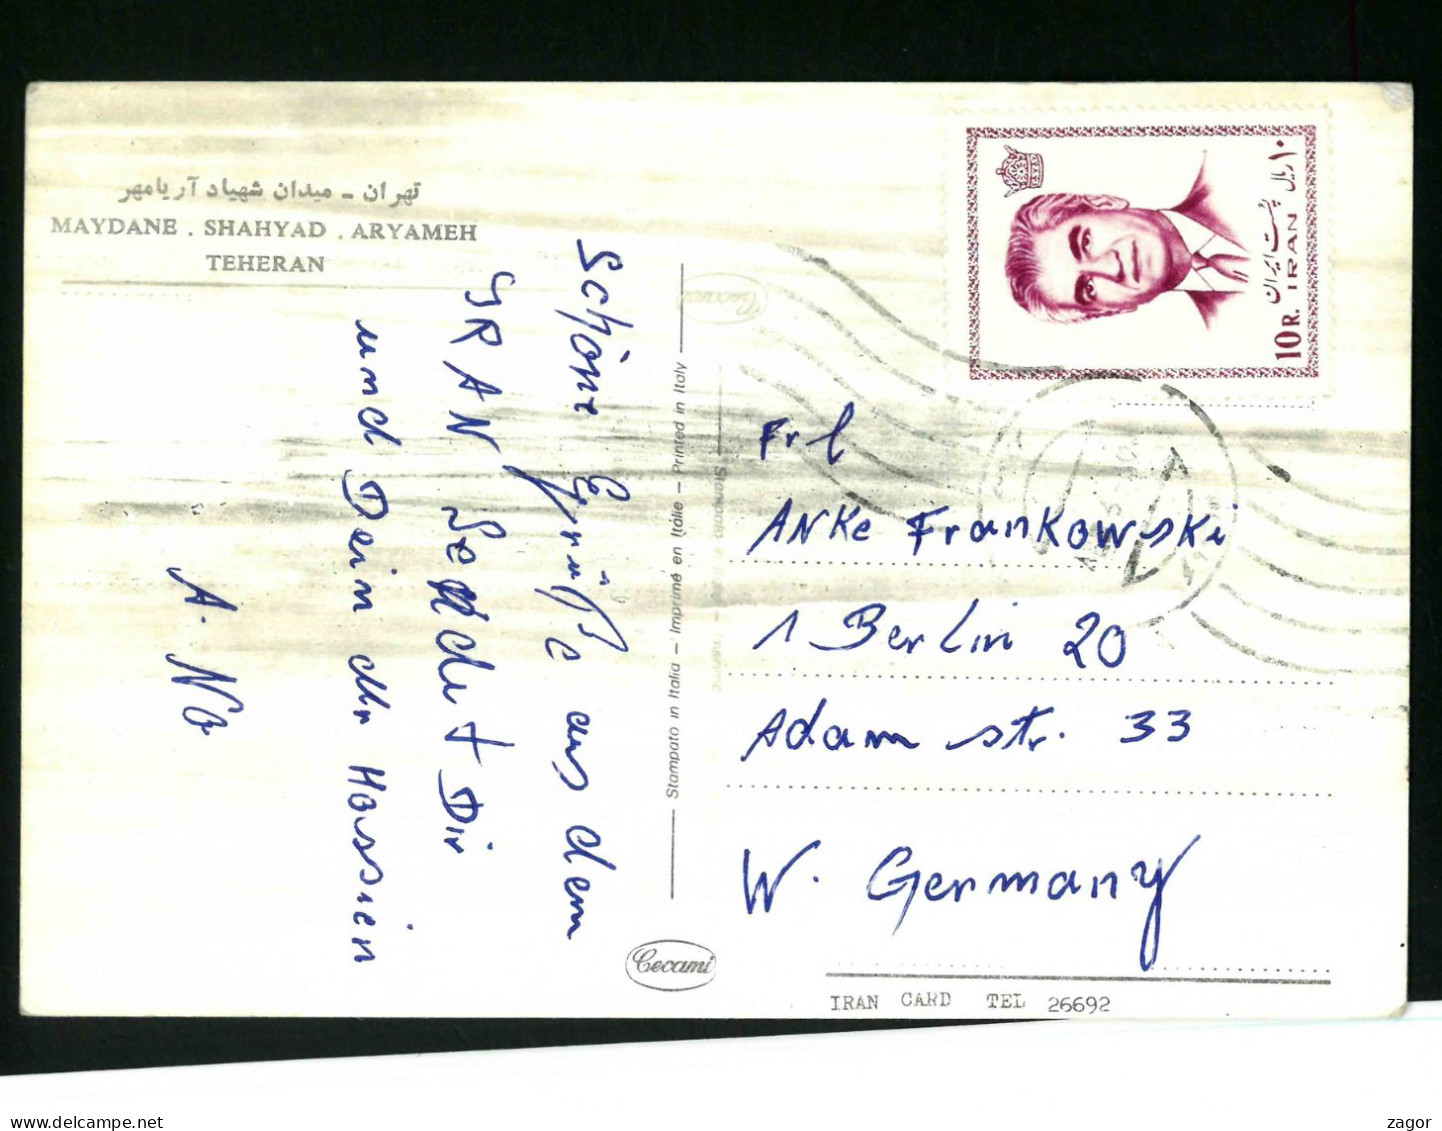 تهران - میدان شهیاد آریامهر
MAYDANE . SHAHYAD . ARYAMEH
TEHERAN
Schöne Grüße aus dem
IRAN sendet Dir
und Dein
Hossien
A. No
Stampato in Italia - Imprimé en Italie - Printed in Italy
Cecami
۱۰ ریال
پست ایران
10 R. IRAN
Frl
Anke Frankowski
1 Berlin 20
Adam str. 33
W. Germany
IRAN CARD TEL 26692
www.delcampe.net
zagor